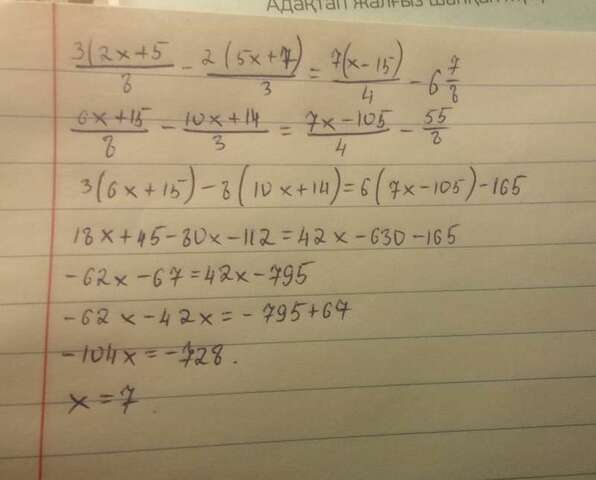 Адақтап жалғыз шапқан
3(2x+5/8 - 2(5x+7)/3 = 7(x-15)/4 - 6 7/8
6x+15/8 - 10x+14/3 = 7x-105/4 - 55/8
3(6x+15)-8(10x+14)=6(7x-105)-165
18x+45-80x-112=42x-630-165
-62x-67=42x-795
-62x-42x=-795+67
-104x=-728.
x=7.